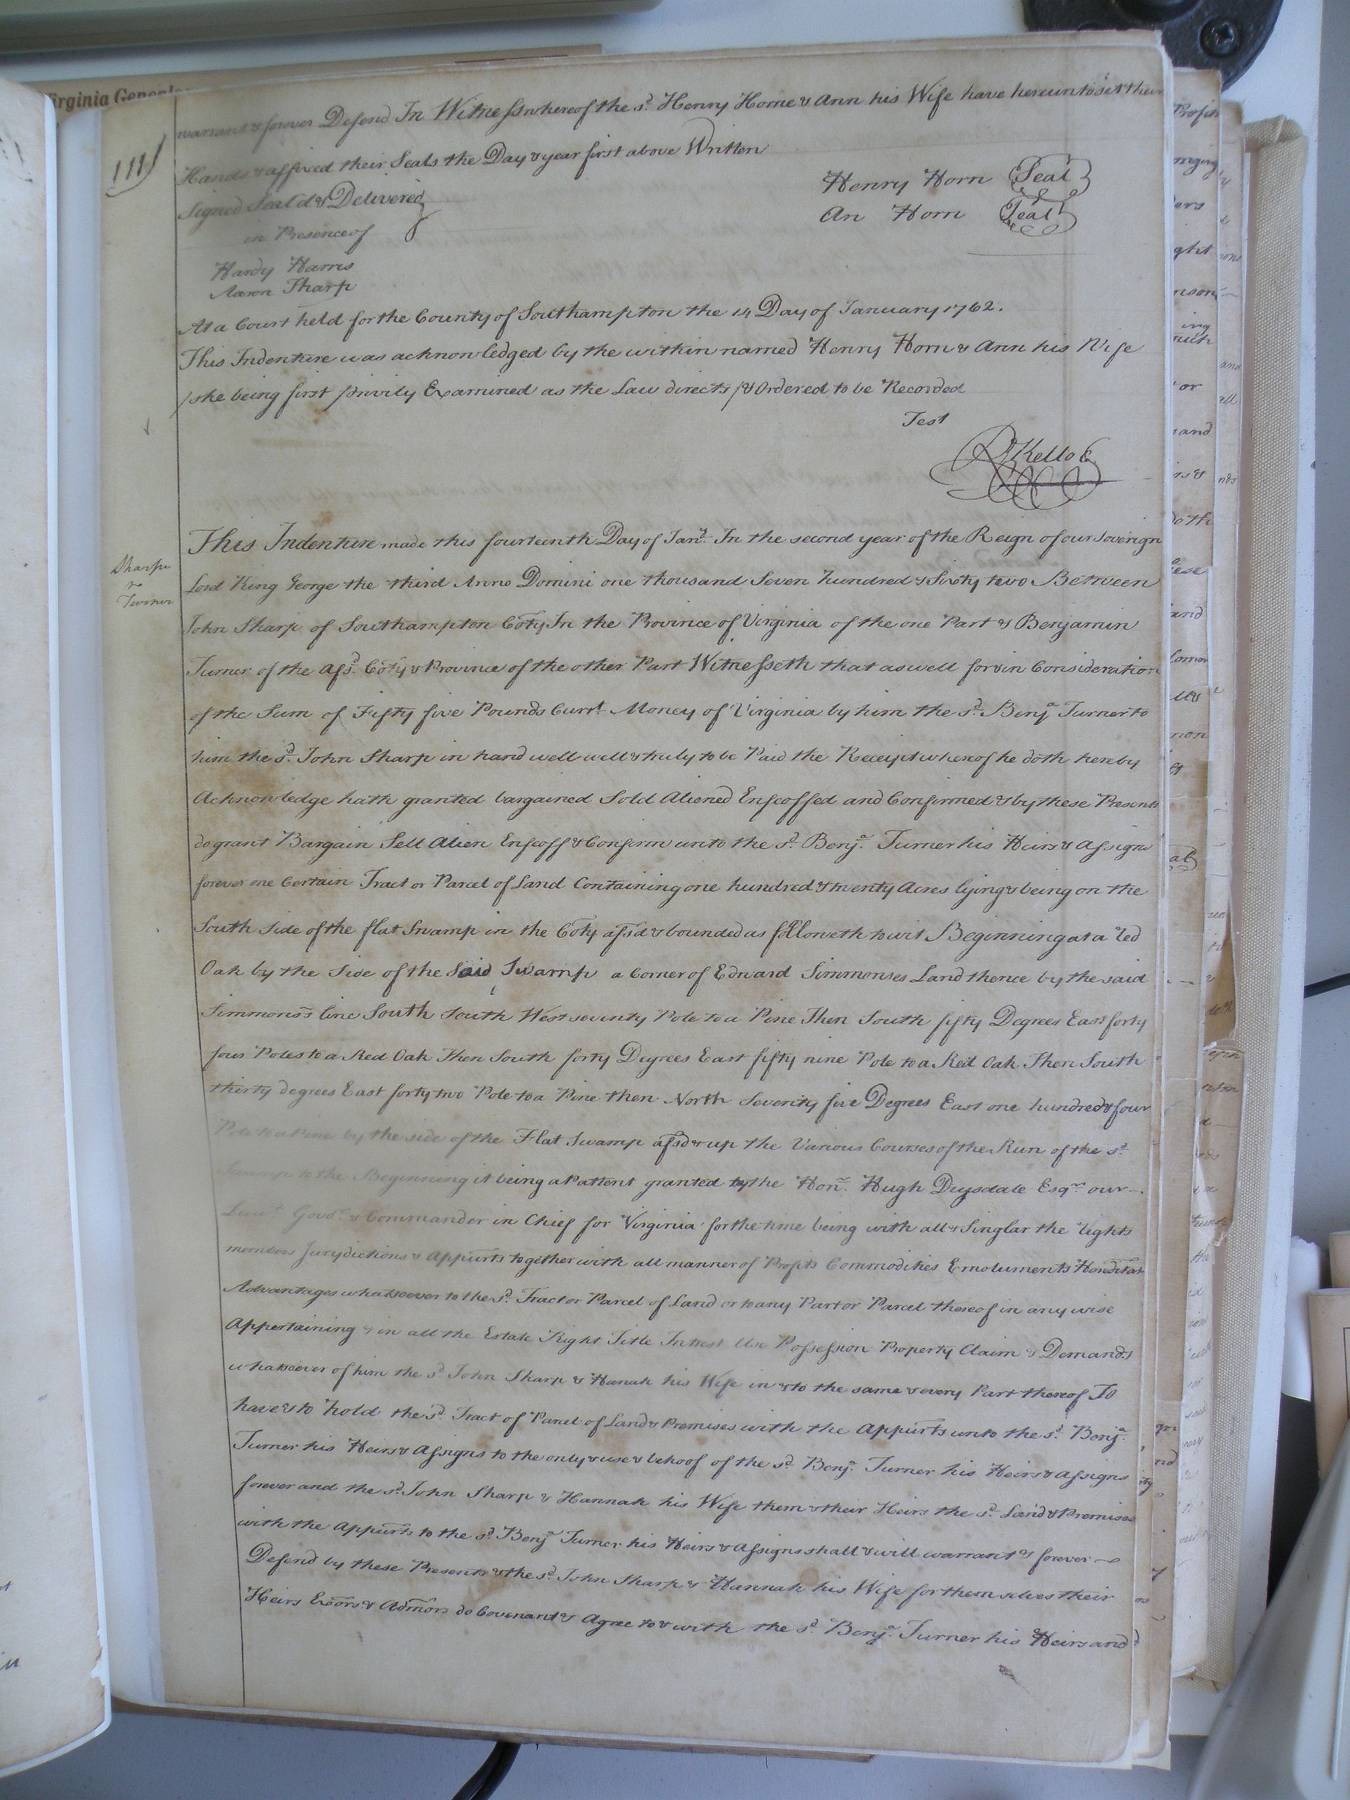 irginia Genealo
111
warrant & forever Defend In Witness whereof the sd. Henry Horne & Ann his Wife have hereunto set their
Hands & affixed their Seals the Day & year first above Written
Signed Seal'd & Delivered
in Presence of
Henry Horn Seal
An Horn Seal
Hardy Harris
Aaron Sharp
At a Court held for the County of Southampton the 14 Day of January 1762.
This Indenture was acknowledged by the within named Henry Horn & Ann his Wife
/she being first privily Examined as the Law directs/ & Ordered to be Recorded
Test
R Kello C
Sharpe
to
Turner
This Indenture made this fourteenth Day of Jany. In the second year of the Reign of our Sovereign
Lord King George the third Anno Domini one thousand Seven hundred & Sixty two Between
John Sharp of Southampton Coty In the Province of Virginia of the one Part & Benjamin
Turner of the afsd. Coty & Province of the other Part Witnesseth that as well for & in Consideration
of the Sum of Fifty five Pounds Currt. Money of Virginia by him the sd. Benja Turner to
him the sd. John Sharp in hand well well & truly to be Paid the Receipt whereof he doth hereby
Acknowledge hath granted bargained Sold Aliened Enfeoffed and Confirmed & by these Presents
do grant Bargain Sell Alien Enfeoff & Confirm unto the sd. Benja. Turner his Heirs & Assigns
forever one Certain Tract or Parcel of Land Containing one hundred & twenty Acres lying & being on the
South Side of the flat Swamp in the Coty afsd & bounded as followeth to wit Beginning at a Red
Oak by the Side of the Said Swamp a Corner of Edward Simmonses Land thence by the said
Simmons's line South South West seventy Pole to a Pine Then South fifty Degrees East forty
four Poles to a Red Oak Then South forty Degrees East fifty nine Pole to a Red Oak Then South
thirty degrees East forty two Pole to a Pine then North Seventy five Degrees East one hundred & four
Pole to a Pine by the side of the Flat Swamp afsd & up the Various Courses of the Run of the sd.
Swamp to the Beginning it being a Pattent granted by the Honr. Hugh Drysdale Esqr. our
Lieut. Govr. & Commander in Chief for Virginia for the time being with all & Singlar the rights
members Jurydictions & Appurts together with all manner of Profits Commodities Emoluments Hereditats
Advantages whatsoever to the sd. Tract or Parcel of Land or to any Part or Parcel thereof in any wise
Appertaining & in all the Estate Right Title Intrest Use Possession Property Claim & Demands
whatsoever of him the sd. John Sharp & Hanah his Wife in & to the same & every Part thereof To
have & to hold the sd. Tract of Parcel of Land & Premises with the Appurts unto the sd. Benja.
Turner his Heirs & Assigns to the only & use & behoof of the sd. Benja. Turner his Heirs & Assigns
forever and the sd. John Sharp & Hannah his Wife them & their Heirs the sd. Land & Premises
with the Appurts to the sd. Benja Turner his Heirs & Assigns shall & will warrant & forever
Defend by these Presents & the sd. John Sharp & Hannah his Wife for themselves their
Heirs Exors & Admors do Covenant & Agree to & with the sd. Benja. Turner his Heirs and